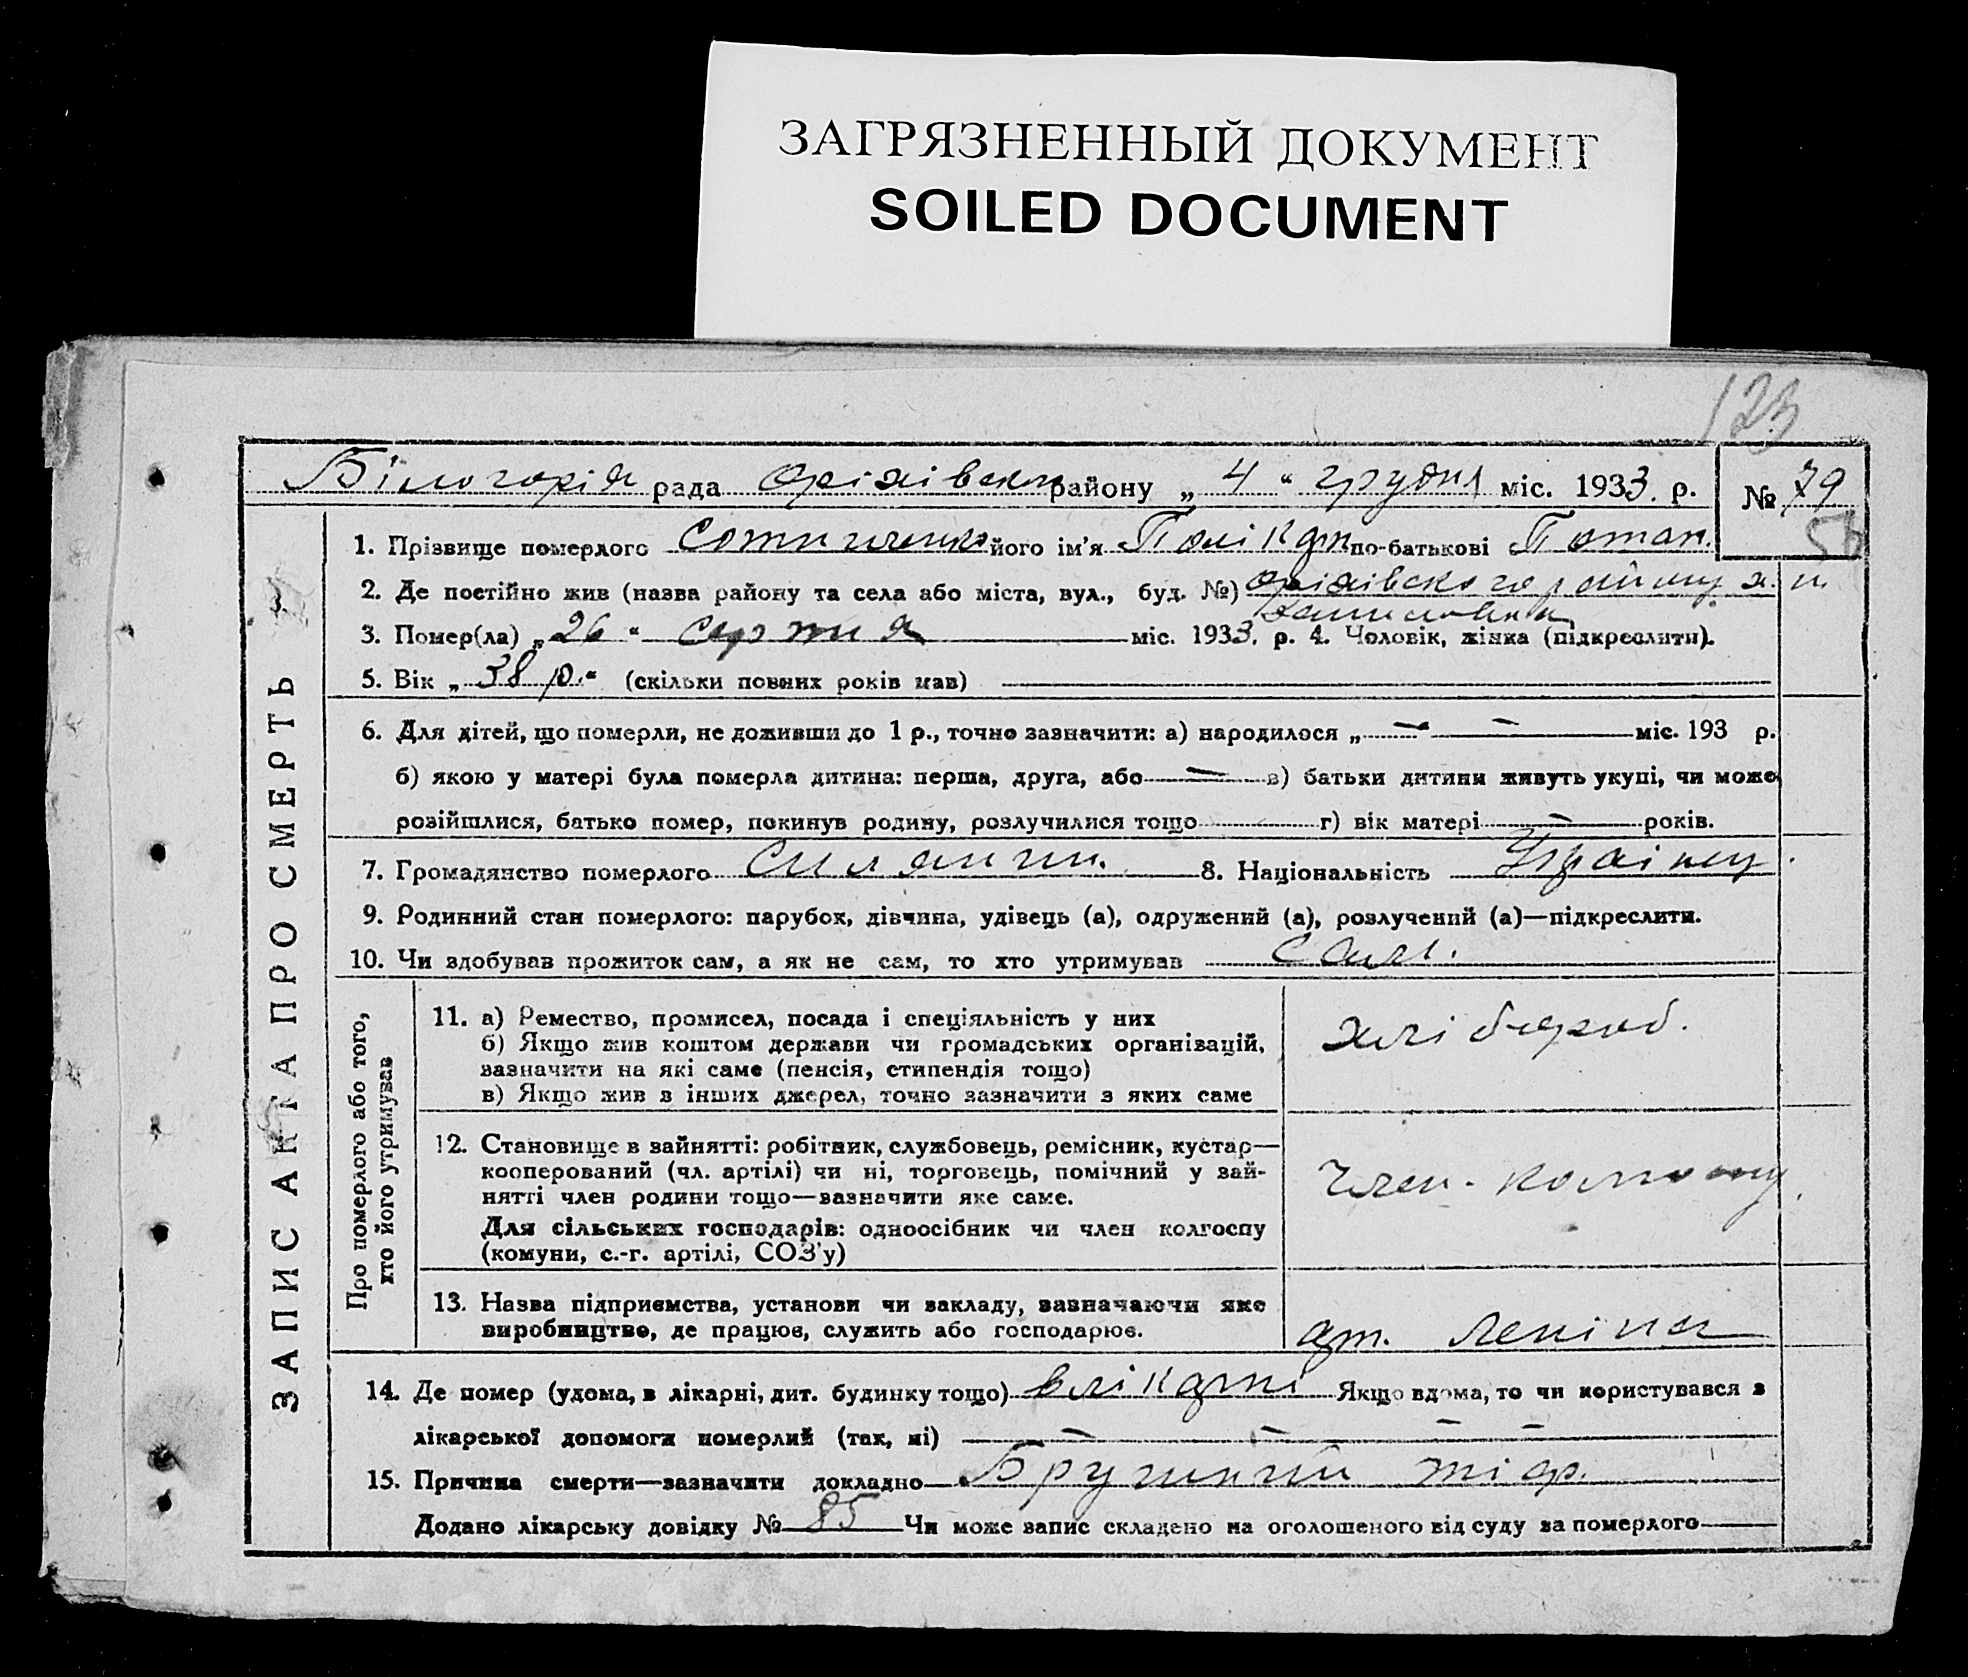 ЗАГРЯЗНЕННЫЙ ДОКУМЕНТ
SOILED DOCUMENT
123
Білогорія рада Оріхівськ району „ 4 “ грудня міс. 1933. р. № 79
56
1. Прізвище померлого його ім'я Полікарп по-батькові Потап.
2. Де постійно жив (назва району та села або міста, вул., буд. №) Оріхівського району х.
3. Помер(ла) „ 26 “ серпня міс. 1933. р. 4. Чоловік, жінка (підкреслити).
5. Вік „ 38 р. “ (скільки повних років мав)
6. Для дітей, що померли, не доживши до 1 р., точно зазначити: а) народилося „ — “ — міс. 193 р.
б) якою у матері була померла дитина: перша, друга, або — в) батьки дитини живуть укупі, чи може
розійшлися, батько помер, покинув родину, розлучилися тощо г) вік матері — років.
7. Громадянство померлого Силянин. 8. Національність Украінец.
9. Родинний стан померлого: парубок, дівчина, удівець (а), одружений (а), розлучений (а)—підкреслити.
10. Чи здобував прожиток сам, а як не сам, то хто утримував сам.
ЗАПИС АКТА ПРО СМЕРТЬ
Про померлого або того,
хто його утримував
11. а) Ремество, промисел, посада і спеціяльність у них
б) Якщо жив коштом держави чи громадських організацій,
зазначити на які саме (пенсія, стипендія тощо)
в) Якщо жив з інших джерел, точно зазначити з яких саме
хлібороб.
12. Становище в зайнятті: робітник, службовець, ремісник, кустар—
кооперований (чл. артілі) чи ні, торговець, помічний у зай-
нятті член родини тощо—зазначити яке саме.
Для сільських господарів: одноосібник чи член колгоспу
(комуни, с.-г. артілі, СОЗ'у)
Член.
13. Назва підприємства, установи чи закладу, зазначаючи яке
виробництво, де працює, служить або господарює.
арт. Леніна
14. Де помер (удома, в лікарні, дит. будинку тощо) в лікарні Якщо вдома, то чи користувався з
лікарської допомоги померлий (так, ні) — — — —
15. Причина смерти—зазначити докладно Брушний тіф.
Додано лікарську довідку № 85 Чи може запис складено на оголошеного від суду за померлого